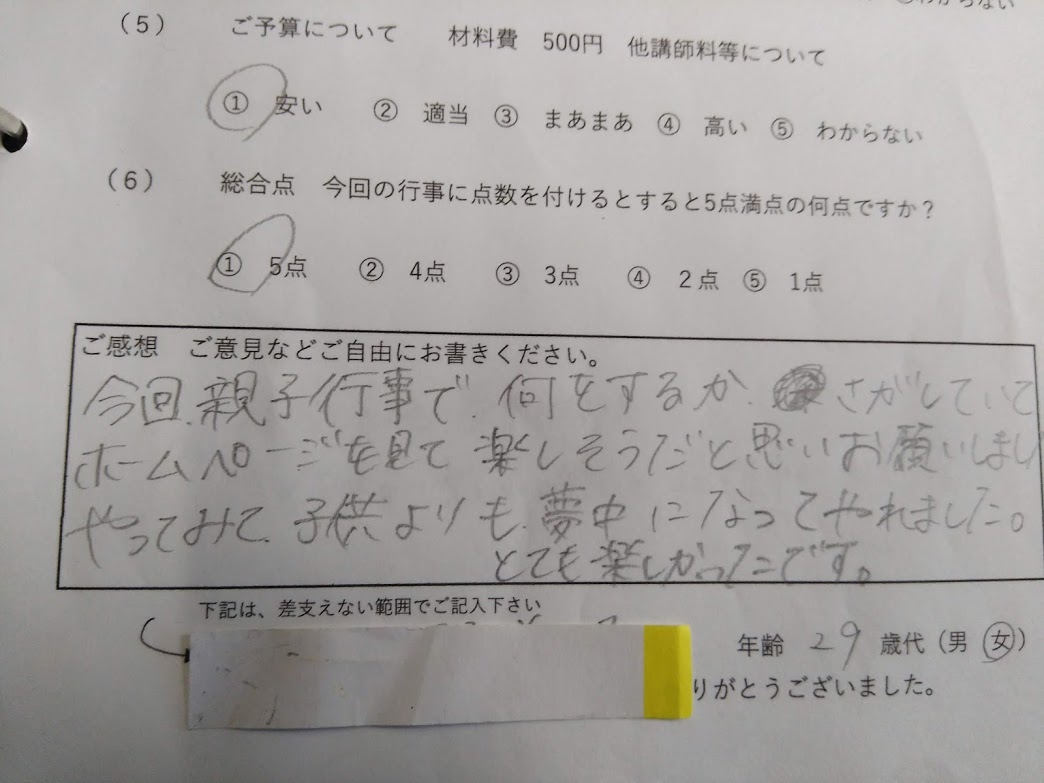 わからない
（５） ご予算について 材料費 500円 他講師料等について
① 安い ② 適当 ③ まあまあ ④ 高い ⑤ わからない
（６） 総合点 今回の行事に点数を付けるとすると5点満点の何点ですか？
① 5点 ② 4点 ③ 3点 ④ ２点 ⑤ 1点
ご感想 ご意見などご自由にお書きください。
今回、親子行事で、何をするか、さがしていて
ホームページを見て楽しそうだと思いお願いしまし
やってみて、子供よりも、夢中になってやれました。
とても楽しかったです。
下記は、差支えない範囲でご記入下さい
年齢 29 歳代（男 女）
りがとうございました。